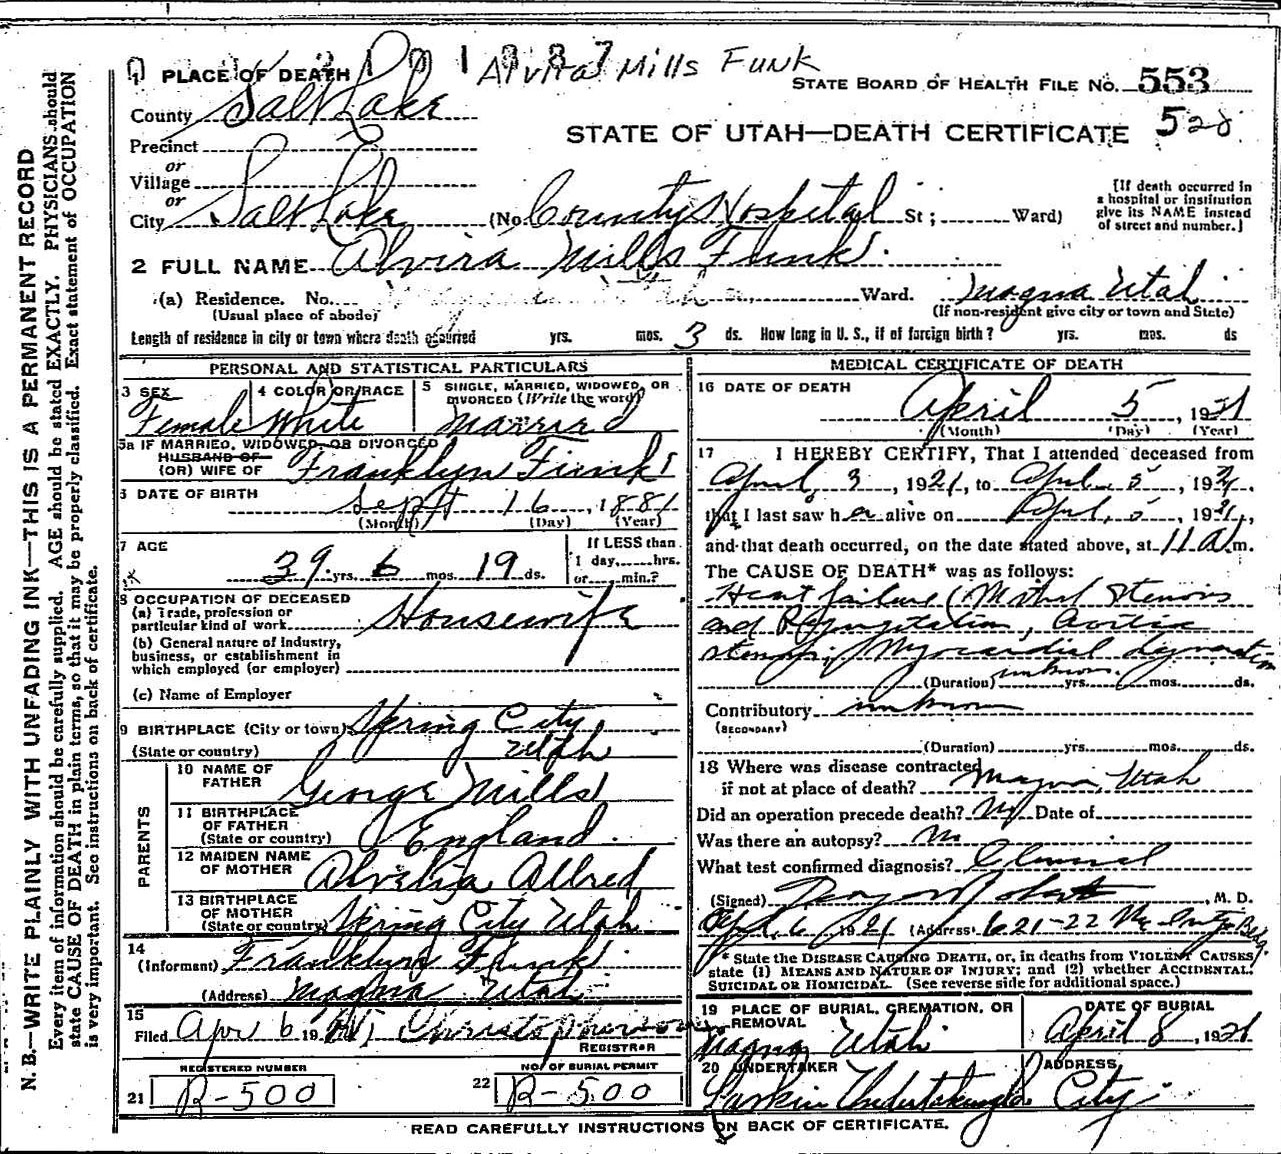 1 PLACE OF DEATH
Alvira Mills Funk
STATE BOARD OF HEALTH FILE NO. 553
County Salt Lake
STATE OF UTAH—DEATH CERTIFICATE 528
Precinct
or
Village
or
City Salt Lake (No. County Hospital St; Ward)
[If death occurred in
a hospital or institution
give its NAME instead
of street and number.]
2 FULL NAME Alvira Mills Funk
(a) Residence. No. Ward. Magna Utah
(Usual place of abode) (If non-resident give city or town and State)
Length of residence in city or town where death occurred yrs. mos. 3 ds. How long in U. S., if of foreign birth? yrs. mos. ds
PERSONAL AND STATISTICAL PARTICULARS
3 SEX
Female
4 COLOR OR RACE
White
5 SINGLE, MARRIED, WIDOWED, OR
DIVORCED (Write the word)
Married
5a IF MARRIED, WIDOWED, OR DIVORCED
HUSBAND OF
(OR) WIFE OF Franklyn Funk
6 DATE OF BIRTH
Sept 16, 1881
(Month) (Day) (Year)
7 AGE
39 yrs. 6 mos. 19 ds.
If LESS than
1 day, hrs.
or min.?
8 OCCUPATION OF DECEASED
(a) Trade, profession or
particular kind of work Housewife
(b) General nature of Industry,
business, or establishment in
which employed (or employer)
(c) Name of Employer
9 BIRTHPLACE (City or town) Spring City
(State or country) Utah
PARENTS
10 NAME OF
FATHER George Mills
11 BIRTHPLACE
OF FATHER
(State or country) England
12 MAIDEN NAME
OF MOTHER Alvelia Allred
13 BIRTHPLACE
OF MOTHER
(State or country) Spring City Utah
14
(Informant) Franklyn Funk
(Address) Magna Utah
15
Filed Apr 6 19
REGISTRAR
REGISTERED NUMBER
21 R-500
NO. OF BURIAL PERMIT
22 R-500
MEDICAL CERTIFICATE OF DEATH
16 DATE OF DEATH
April 5, 1921
(Month) (Day) (Year)
17 I HEREBY CERTIFY, That I attended deceased from
April 3, 1921, to April 5, 1921,
that I last saw her alive on April 5, 1921,
and that death occurred, on the date stated above, at 11 A. m.
The CAUSE OF DEATH* was as follows:
Heart failure (Mitral Stenosis
and Regurgitation, Aortic
stenosis, Myocardial degeneration
(Duration) unknown yrs. mos. ds.
Contributory unknown
(SECONDARY)
(Duration) yrs. mos. ds.
18 Where was disease contracted
if not at place of death? Magna, Utah
Did an operation precede death? No Date of
Was there an autopsy? No
What test confirmed diagnosis? Clinical
(Signed) M. D.
Apl. 6 1921 (Address) 621-22 Mc Intyre Bldg
* State the DISEASE CAUSING DEATH, or, in deaths from VIOLENT CAUSES
state (1) MEANS AND NATURE OF INJURY; and (2) whether ACCIDENTAL,
SUICIDAL OR HOMICIDAL. (See reverse side for additional space.)
19 PLACE OF BURIAL, CREMATION, OR
REMOVAL
Magna Utah
DATE OF BURIAL
April 8, 1921
20 UNDERTAKER
Larkin Undertaking Co
ADDRESS
City
READ CAREFULLY INSTRUCTIONS ON BACK OF CERTIFICATE.
N. B.—WRITE PLAINLY WITH UNFADING INK—THIS IS A PERMANENT RECORD
Every item of information should be carefully supplied. AGE should be stated EXACTLY. PHYSICIANS should
state CAUSE OF DEATH in plain terms, so that it may be properly classified. Exact statement of OCCUPATION
is very important. See instructions on back of certificate.